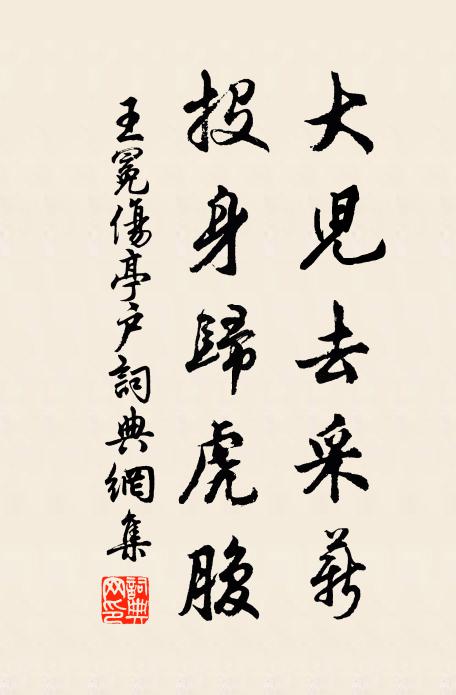 大児去采薪
投身歸虎腹
王冕傷亭户詞典網集
詞典網印